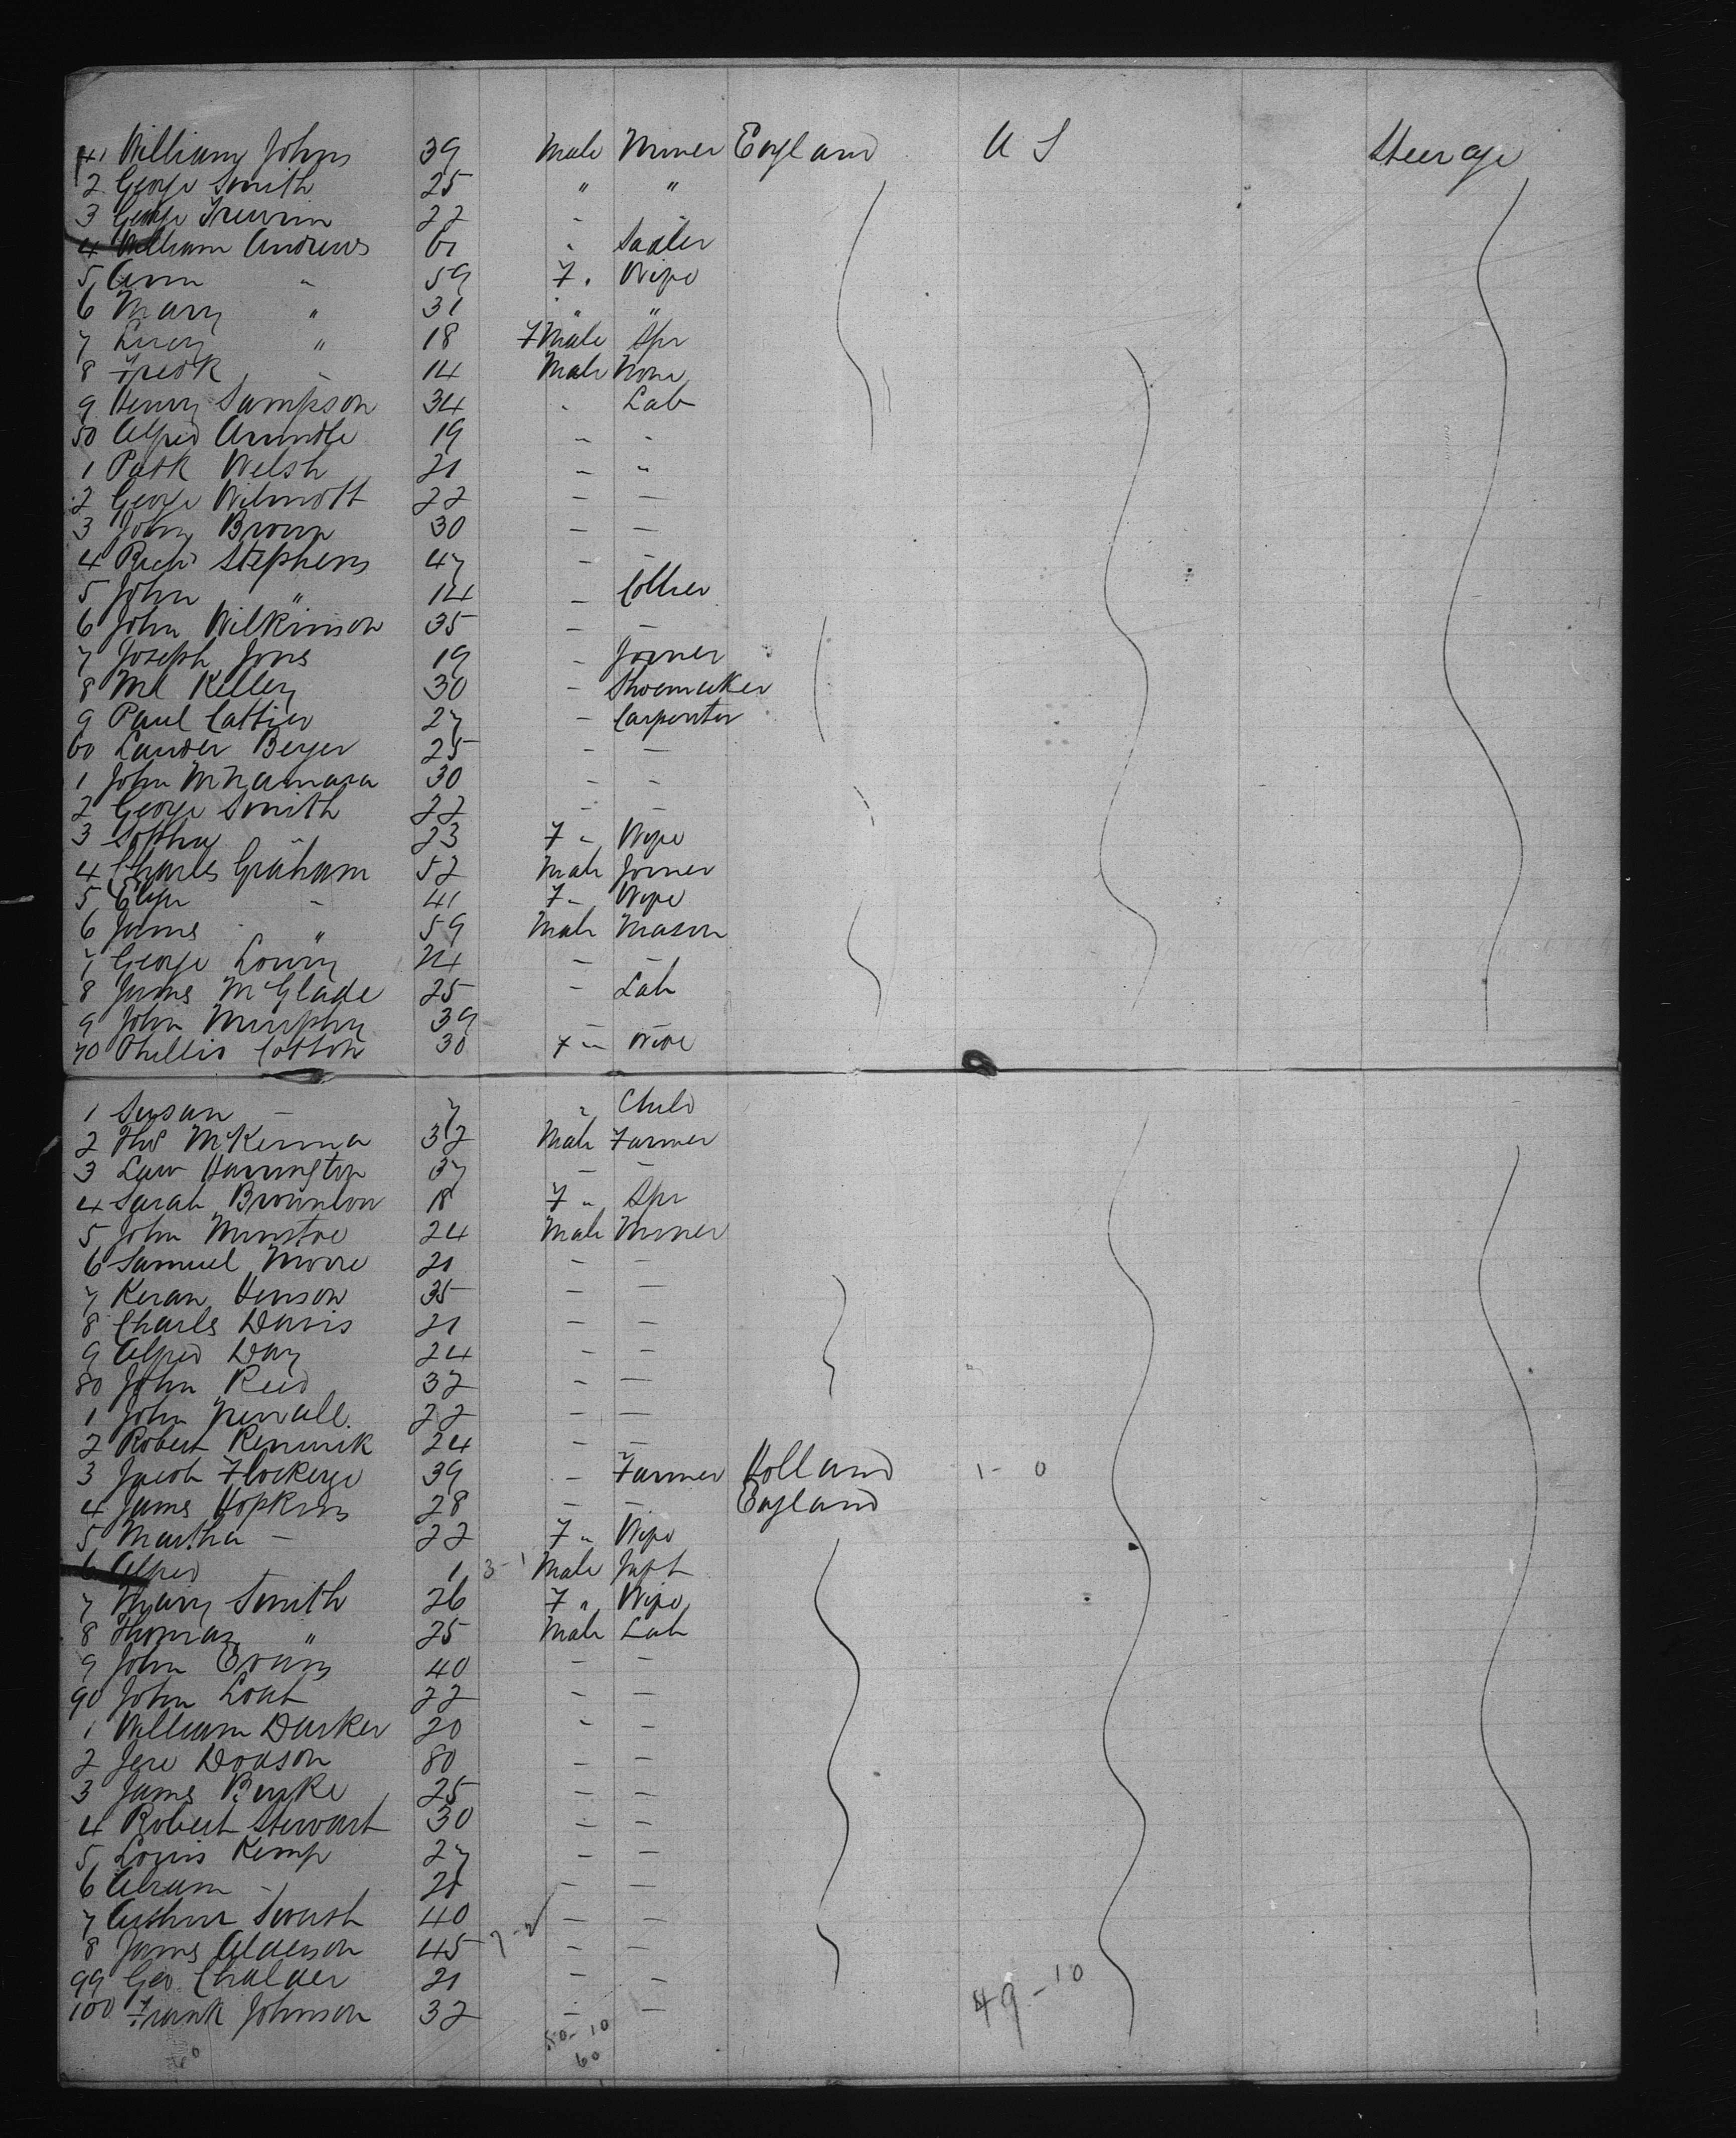 41 William Johns 39 Male Miner England U S Steerage
2 George Smith 25 " "
3 George Trewin 22 "
4 William Andrews 61 " Sadler
5 Ann " 59 F " Wife
6 Mary " 31 " "
7 Lucy " 18 FMale Spr
8 Fredk " 14 Male None
9 Henry Sampson 34 " Lab
50 Alfred Arundle 19 " "
1 Patk Welsh 21 " "
2 George Wilmott 22 - -
3 John Brown 30 - -
4 Richd Stephens 47 - -
5 John " 14 - Collier
6 John Wilkinson 35 - -
7 Joseph Jones 19 - Joiner
8 Ml Kelley 30 - Shoemaker
9 Paul Cattier 27 - Carpenter
60 Lander Beyer 25 - -
1 John McNamara 30 - -
2 George Smith 22 - -
3 Sophia " 23 F " Wife
4 Charles Graham 52 Male Joiner
5 " 41 F " Wife
6 James " 59 Male Mason
7 George Lowry 24 - -
8 James McGlade 25 - Lab
9 John Murphy 39 - -
70 Phillis Cotton 30 F " Wife
1 Susan - 7 " Child
2 Thos McKenna 32 Male Farmer
3 Law Harrington 37 - -
4 Sarah Brownlow 18 F " Spr
5 John 24 Male Miner
6 Samuel Moore 21 - -
7 Keran Henson 35 - -
8 Charles Davis 21 - -
9 Alfred Day 24 - -
80 John Reed 32 - -
1 John 22 - -
2 Robert Renwick 24 - -
3 Jacob 39 - Farmer Holland 1 - 0
4 James Hopkins 28 - - England
5 Martha - 22 F " Wife
6 Alfred 1 3-1 Male Inft
7 Mary Smith 26 F " Wife
8 Thomas " 25 Male Lab
9 John Evans 40 - -
90 John Loat 22 - -
1 William Darker 20 - -
2 Jere Dodson 80 - -
3 James Burke 25 - -
4 Robert Stewart 30 - -
5 Louis Kemp 27 - -
6 - 21 - -
7 Arthur 40 - -
8 James Alderson 45 7-2 - -
99 Geo. Chalder 21 - -
100 Frank Johnson 32 - - 49-10
50-10
60